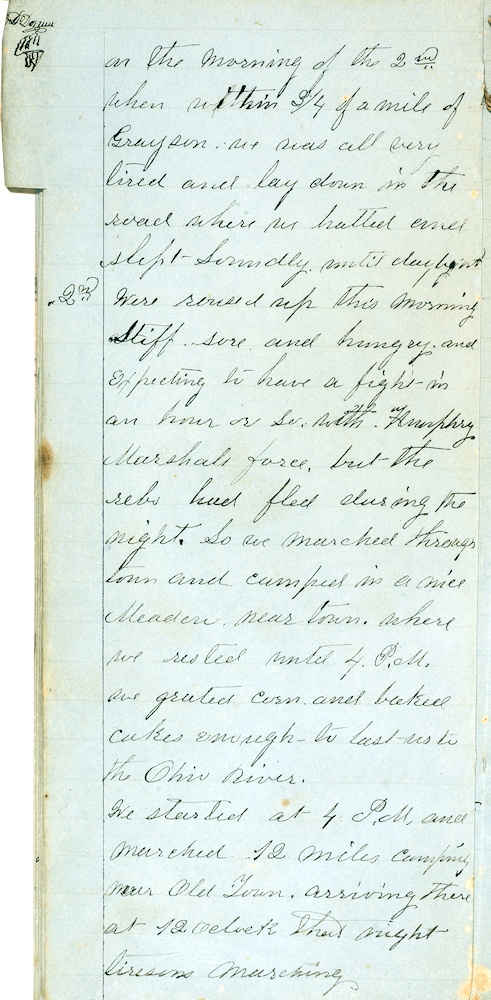 on the morning of the 2nd
when within 3/4 of a mile of
Grayson. we was all very
tired and lay down in the
road where we halted and
slept soundly until daylight
2nd Were roused up this morning
Stiff. sore. and hungry. and
Expecting to have a fight in
an hour or so. with Humphry
Marshals force. but the
rebs had fled during the
night. So we marched through
town and camped in a nice
Meadow. near town. where
we rested until 4. P.M.
we grated corn. and baked
cakes enough to last us to
the Ohio River.
We started at 4 P.M. and
marched 12 miles camping
near Old Town. arriving there
at 12 oclock that night
tiresom marching